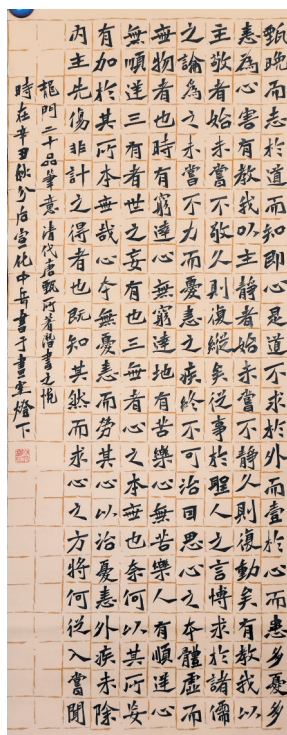 甄晚而志於道而知即心是道不求於外而壹於心而患多憂多
恚為心害有教我以主靜者始未嘗不靜久則復動矣有教我以
主敬者始未嘗不敬久則復縱矣從事於聖人之言博求於諸儒
之論為之未嘗不力而憂恚之疾終不可治因思心之本體虛而
無物者也時有窮達心無窮達地有苦樂心無苦樂人有順逆心
無順逆三有者世之妄有也三無者心之本無也奈何以其所妄
有加於其所本無哉心本無憂恚而勞其心以治憂恚外疾未除
內主先傷非計之得者也既知其然而求心之方將何從入嘗聞
龍門二十品筆意清代唐甄所著潛書之悅
時在辛丑秋分后宣化中書于畫室燈下